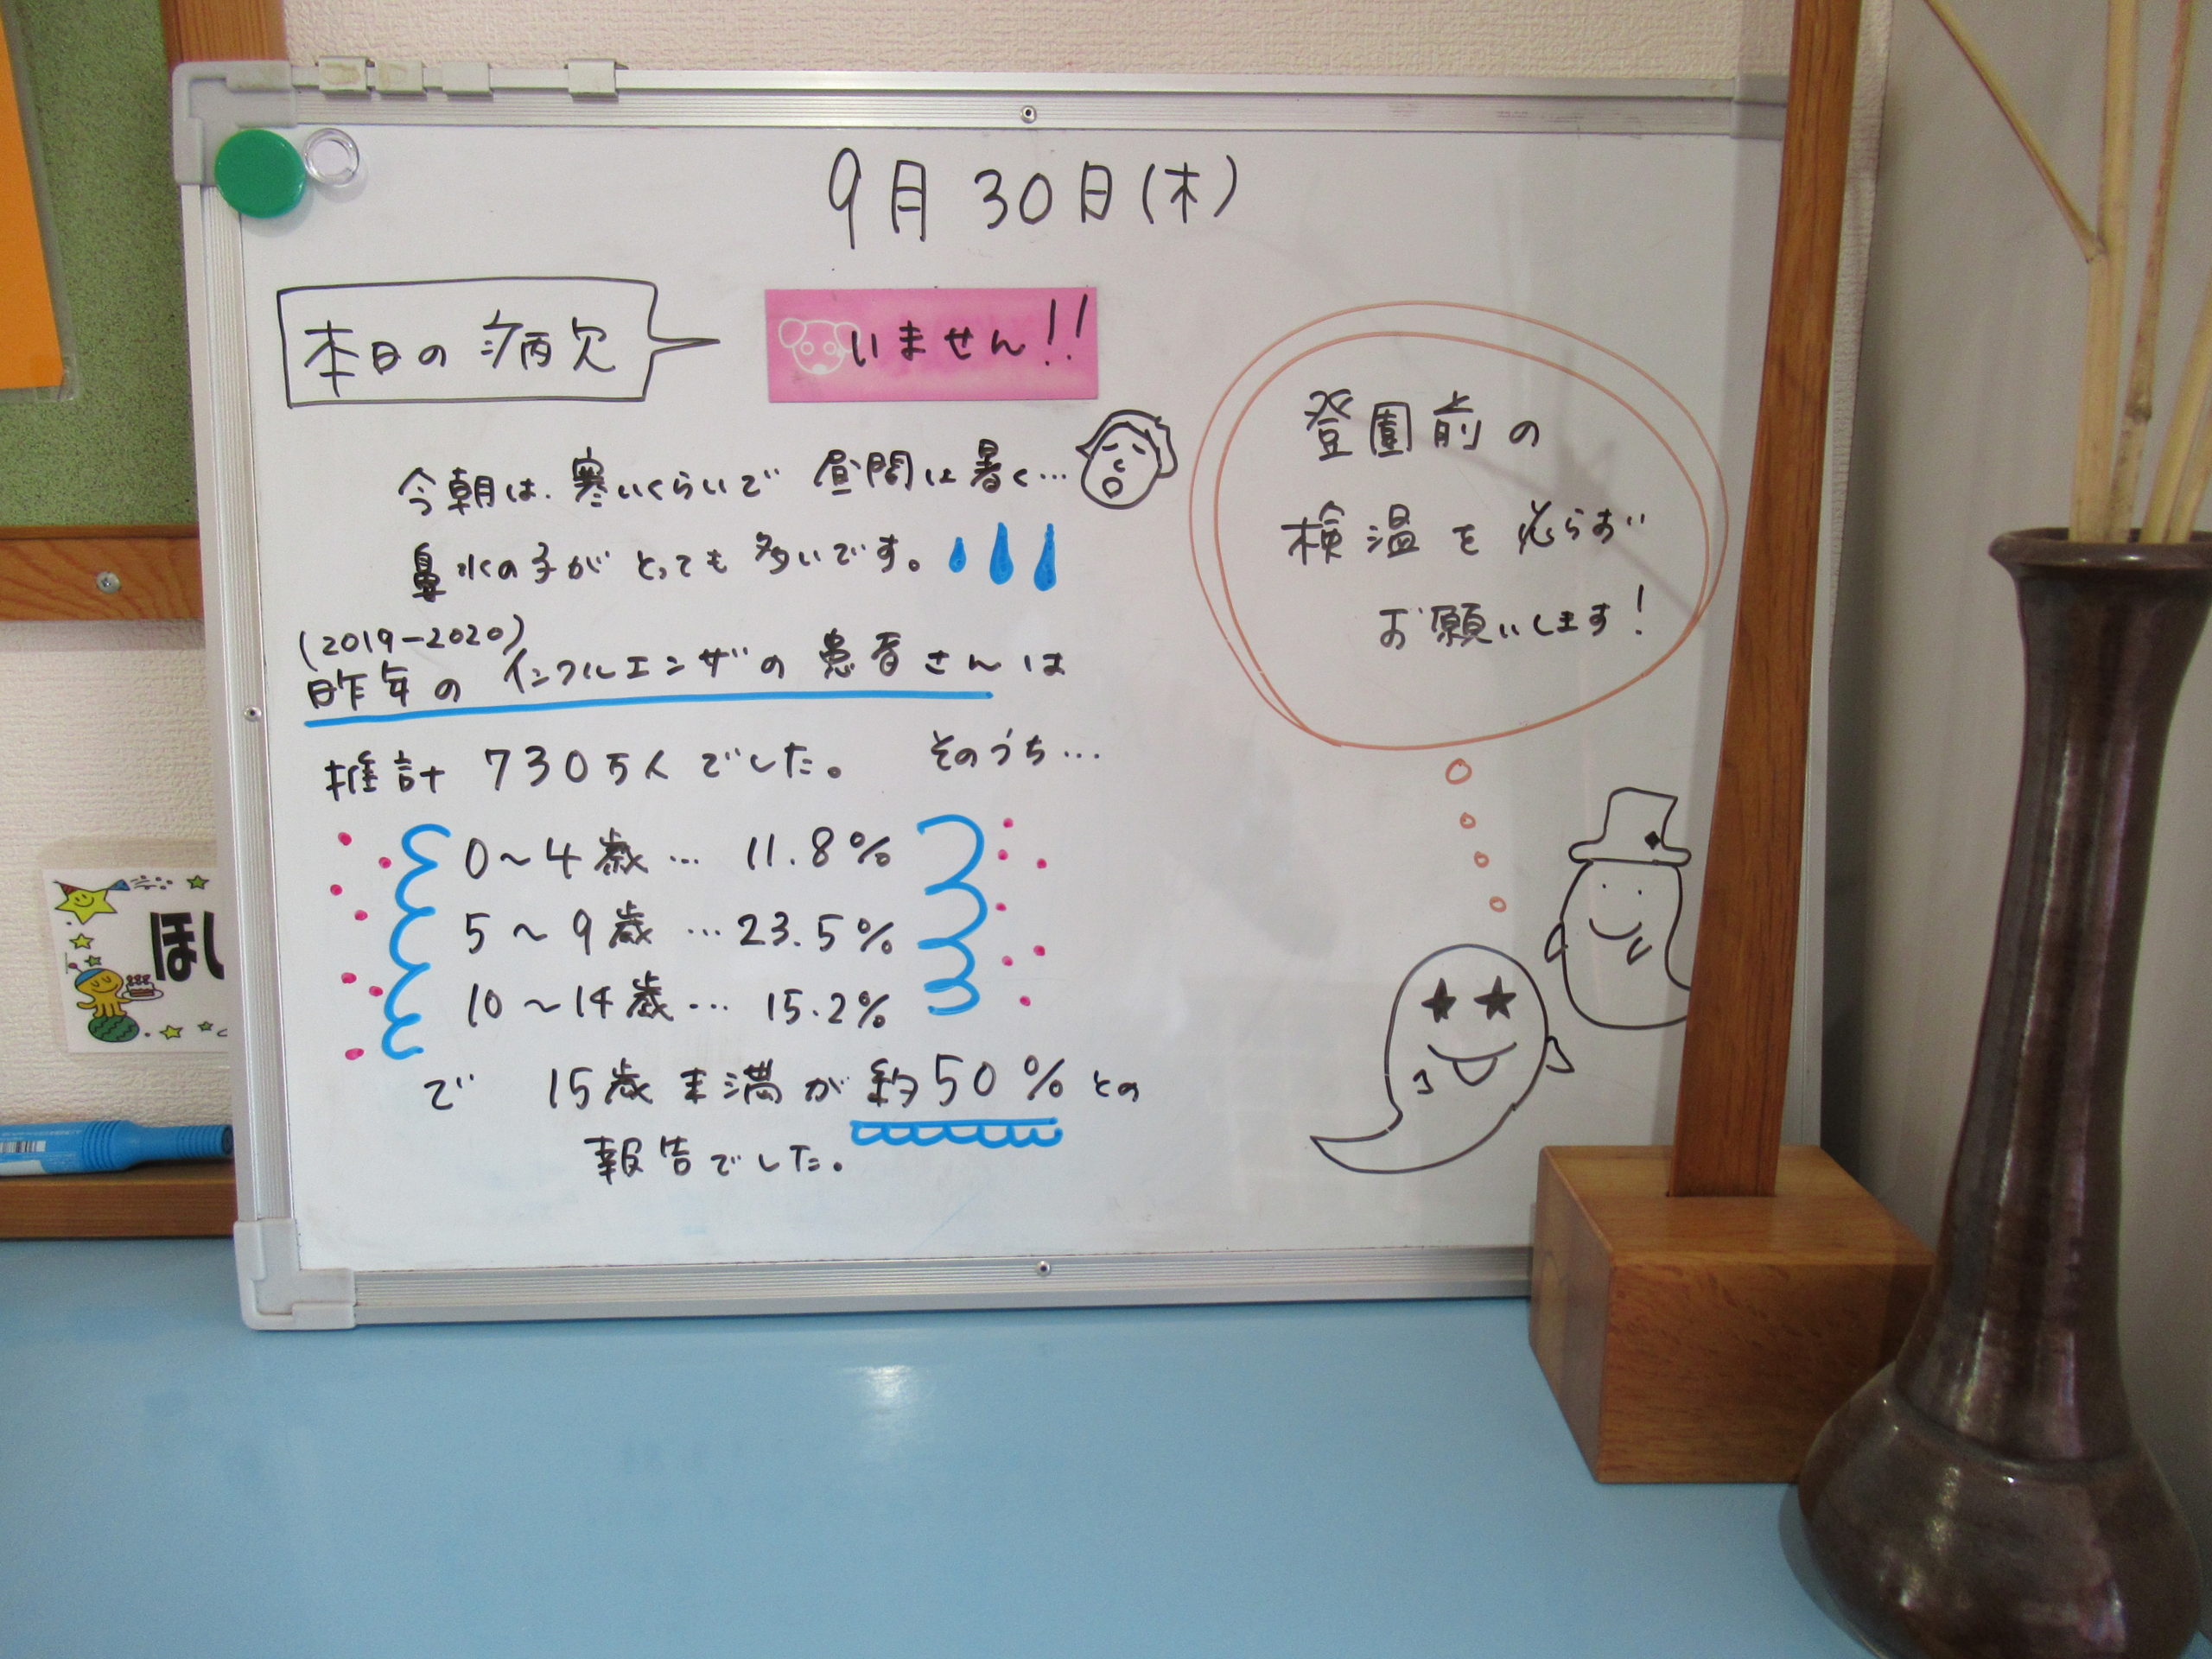 9月30日(木)
本日の病欠
いません!!
今朝は、寒いくらいで 昼間は暑く…
鼻水の子が とっても 多いです。
(2019-2020)
昨年の インフルエンザの 患者さんは
推計 730万人でした。 そのうち…
0〜4歳… 11.8%
5〜9歳…23.5%
10〜14歳… 15.2%
で 15歳未満が約50%との
報告でした。
登園前の
検温を必らず
お願いします!
ほし